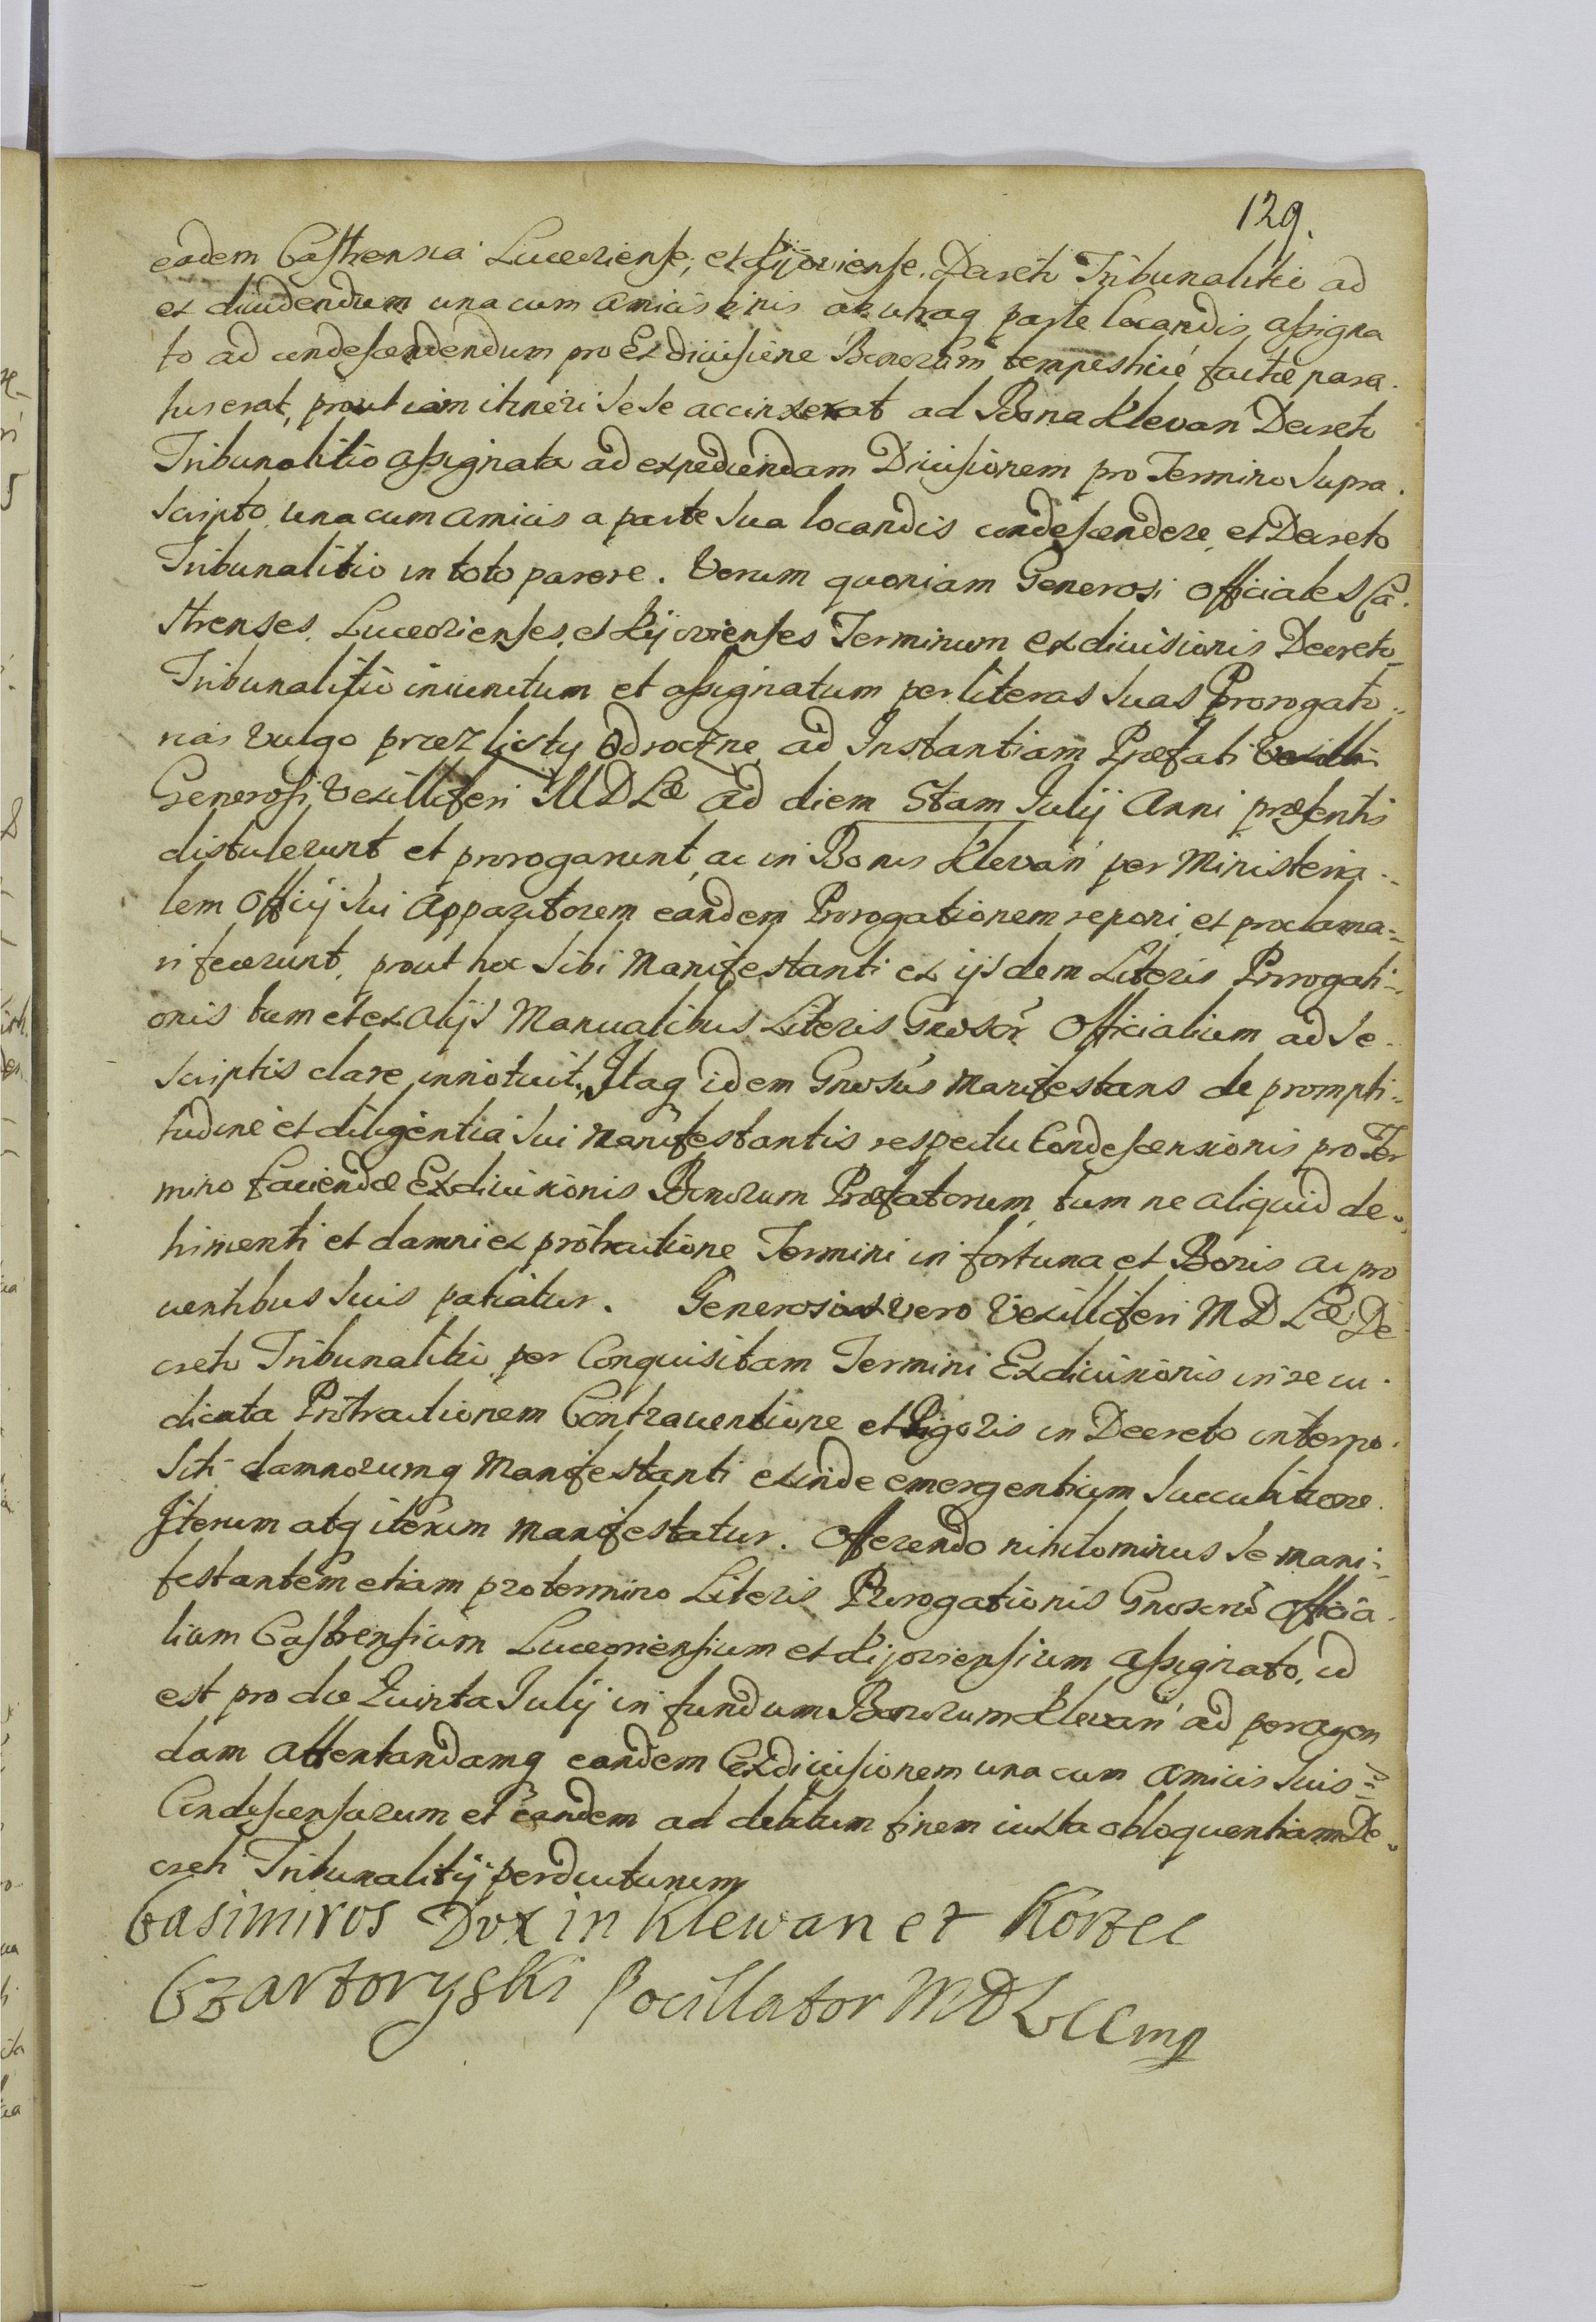 129.
eadem Castrensia Luceoriense, et Kijoviense. Decreto Tribunalitio ad
ex diuidendum una cum amicis binis ab utraq parte locandis assigna
to ad condescendendum pro Exdiuisione Bonorum tempestiue facto para.
tus erat, prout iam itineri sese accinxerat ad Bona Klevań Decreto
Tribunalitio assignata ad expediendam Diuisionem pro Termino supra.
scripto una cum amicis a parte sua locandis condescendere, et Decreto
Tribunalitio in toto parere. Verum quoniam Generosi Officiales Ca.
strenses Luceorienses, et Kijovienses Terminum exdiuisionis Decreto
Tribunalitio iniunctum et assignatum per literas suas Prorogato..
rias vulgo przez listy odroczne ad Instantiam Præfati
Generosi Vexilliferi MDLæ ad diem 5tam Iulij Anni præsentis
distulerunt et prorogarunt, ac in Bonis Klevań per Ministeria..
lem Officij sui Apparitorem eandem Prorogationem reponi, et proclama=
ri fecerunt, prout hoc sibi Manifestanti ex ijsdem Literis Prorogati=
onis tum et ex alijs Manualibus Literis Gnosor Officialium ad se.
scriptis clare innotuit. Itaq idem Gnosus Manifestans de prompti..
tudine et diligentia sui Manifestantis respectu Condescensionis pro Ter
mino faciendæ Exdiuisionis Bonorum Præfatorum, tum ne aliquid de..
trimenti et damni ex protractione Termini in fortuna et Bonis ac pro
uentibus suis patiatur. Generosi vero Vexilliferi MDLæ De
creti Tribunalitii per Conquisitam Termini Exdiuisionis in re iu.
dicata Protractionem Contrauentione et Rigoris in Decreto interpo.
siti damnorumq Manifestanti exinde emergentium succubitione.
Iterum atq iterum manifestatur. Offerendo nihilominus se mani=
festantem etiam pro termino Literis Prorogationis Gnosoru Officia.
lium Castrensium Luceoriensium et Kijoviensium assignato, id
est pro die Quinta Iulij in fundum Bonorum Klevań ad peragen
dam attentandamq eandem Exdiuisionem una cum amicis suis=
Condescensurum et eandem ad debitum finem iuxta obloquentiam De..
creti Tribunalitij perducturum
Casimirus Dux in Klewan et Korzec
Czartoryski Pocillator MDL mp